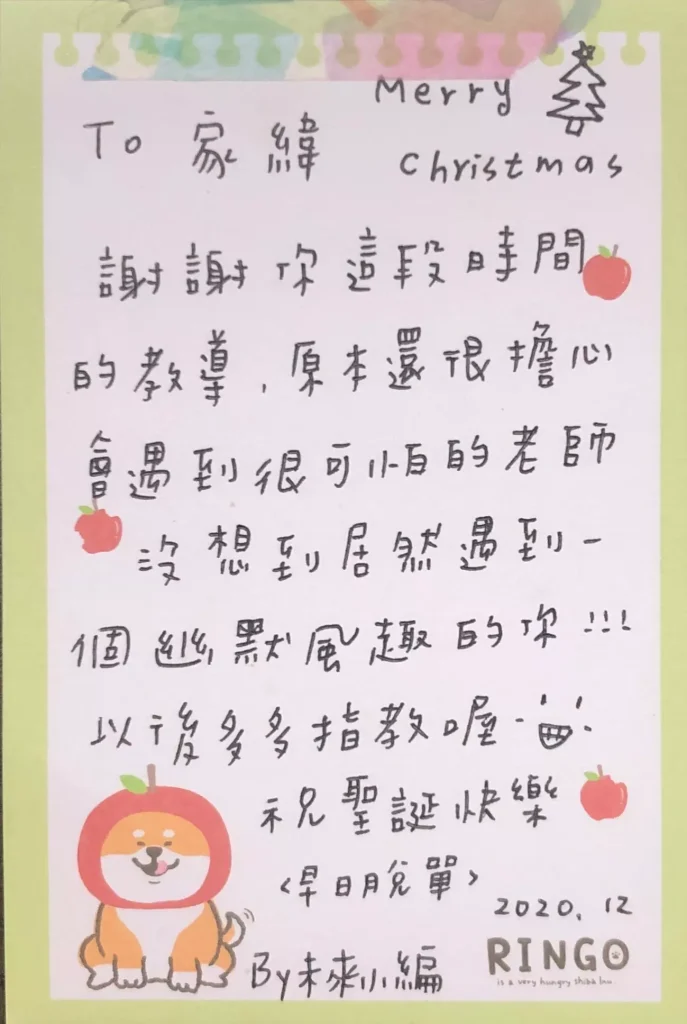 Merry
To 家緯
Christmas
謝謝你這段時間
的教導，原本還很擔心
會遇到很可怕的老師
沒想到居然遇到一
個幽默風趣的你!!!
以後多多指教喔
祝聖誕快樂
<早日脫單>
2020.12
By未來小編
RINGO
is a very hungry shiba inu